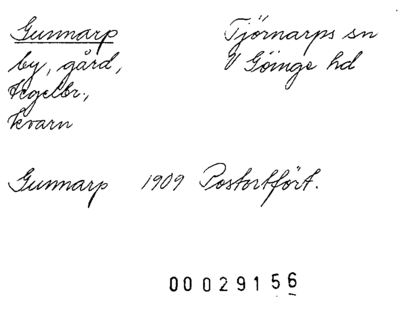 Gunnarp
by, gård,
tegelbr.,
kvarn
Tjörnarps sn
V Göinge hd
Gunnarp 1909 Postortfört.
00029156